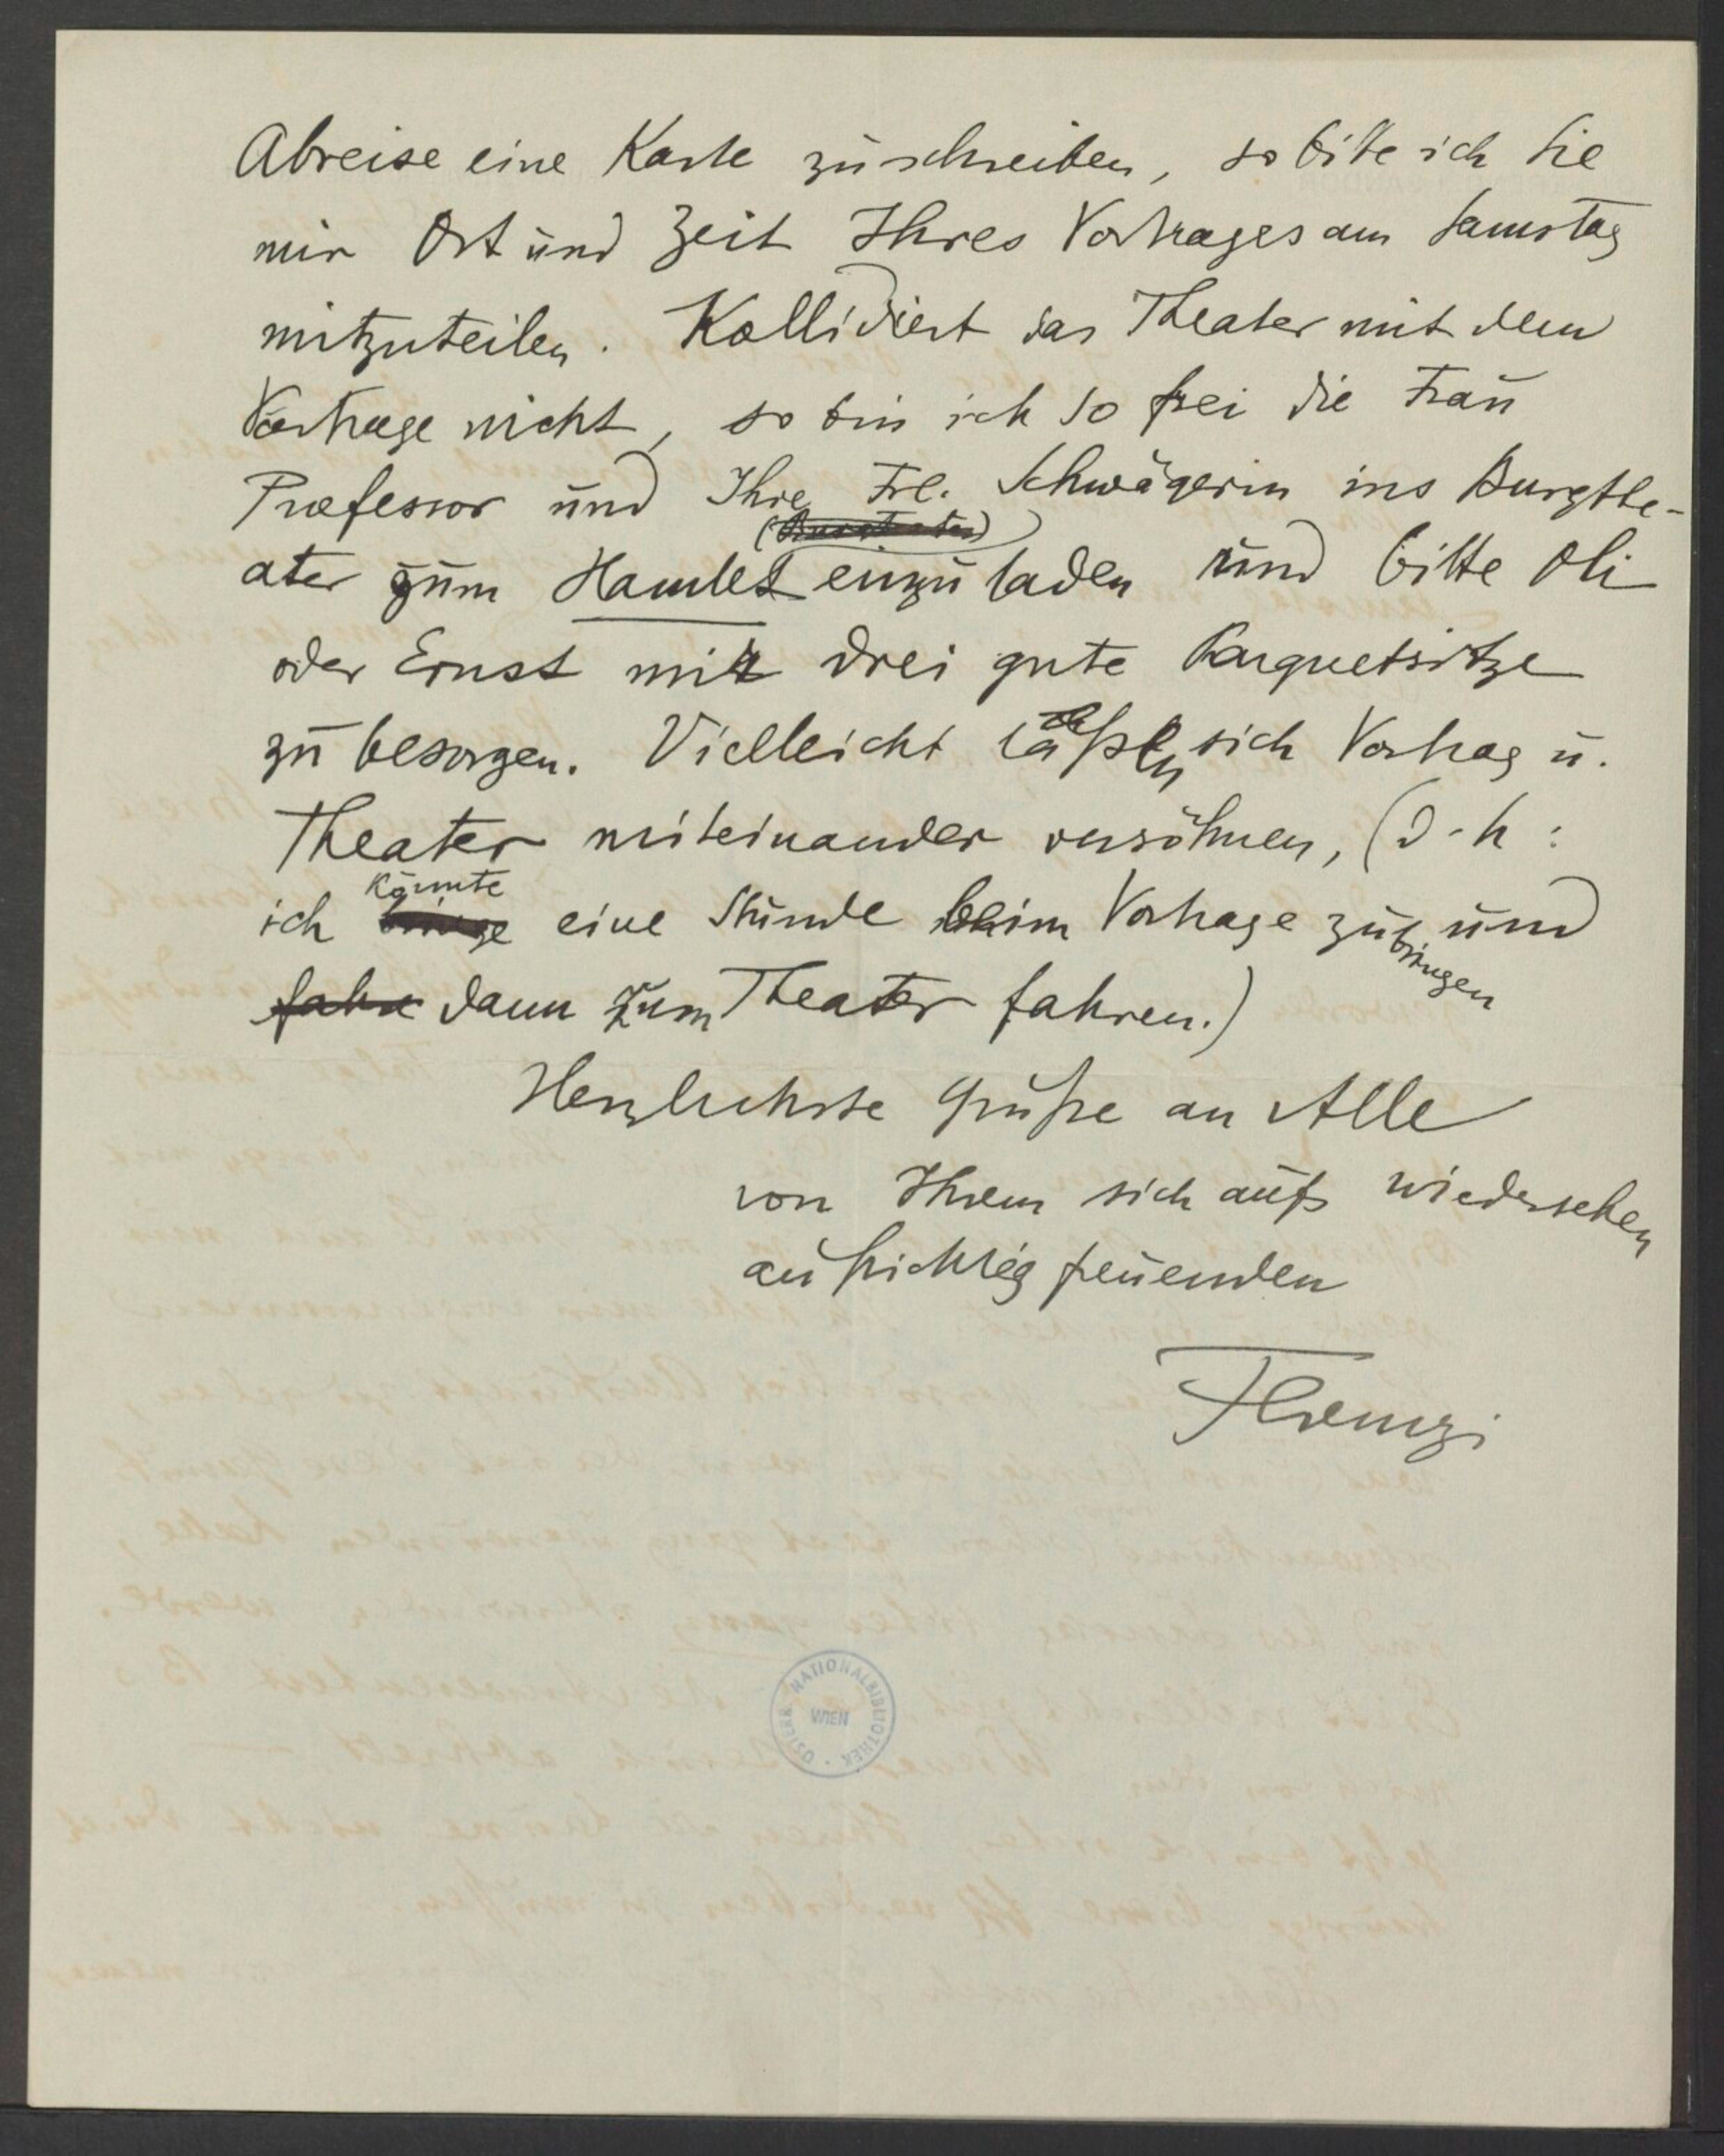 Abreise eine Karte zu schreiben, so bitte ich Sie
mir Ort und Zeit Ihres Vortrages am Samstag
mitzuteilen. Kollidiert das Theater mit dem
Vortrage nicht, so bin ich so frei die Frau
Professor und Ihre Frl. Schwägerin ins Burgthe-
(Burgtheater)
ater zum Hamlet einzuladen und bitte Oli
oder Ernst mir drei gute Parquetsitze
zu besorgen. Vielleicht laßen sich Vortrag u.
Theater miteinander versöhnen, (d. h:
könnte
ich bringe eine Stunde beim Vortrage zubringen und
fahre dann zum Theater fahren.)
Herzlichste Grüße an Alle
von Ihrem sich aufs wiedersehen
aufrichtig freuenden
Ferenczi
ÖSTERR. NATIONALBIBLIOTHEK
WIEN